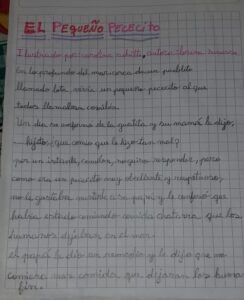 EL PEQUEÑO PECECITO
Ilustrado por: carolina
En lo profundo del mar cerca de un pueblito
llamado lota, vivía un pequeño pececito al que
todos llamaban
Un día se enfermó de la guatita y su mamá le dijo,
- hijito ¿que comio que le hizo tan mal?
por un instante, no quiso responder, pero
como era un pececito muy obediente y respetuoso,
no le gustaba a su papá y le confesó que
había estado comiendo comida chatarra, que los
humanos dejaban en el mar.
el papá le dio un remedio y le dijo que no
comiera más comida que dejaran los humanos
fin.